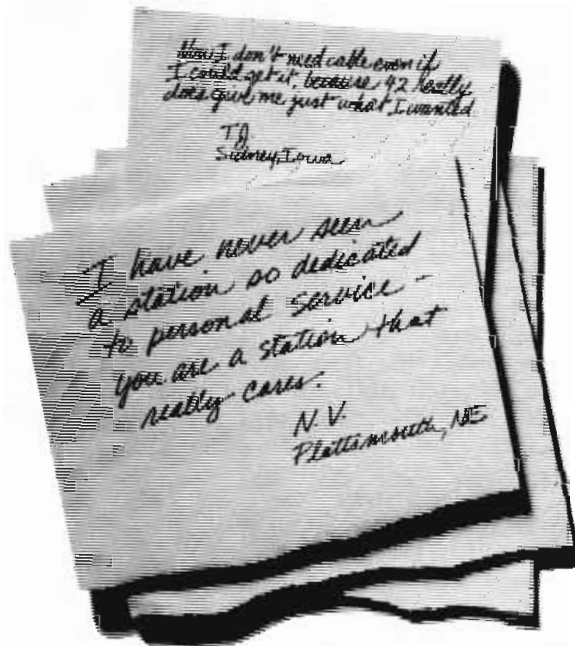 Now I don't need cable even if
I could get it, because 42 really
does give me just what I wanted
T.J.
Sidney, Iowa
I have never seen
a station so dedicated
to personal service -
you are a station that
really cares.
N.V.
Plattsmouth, NE